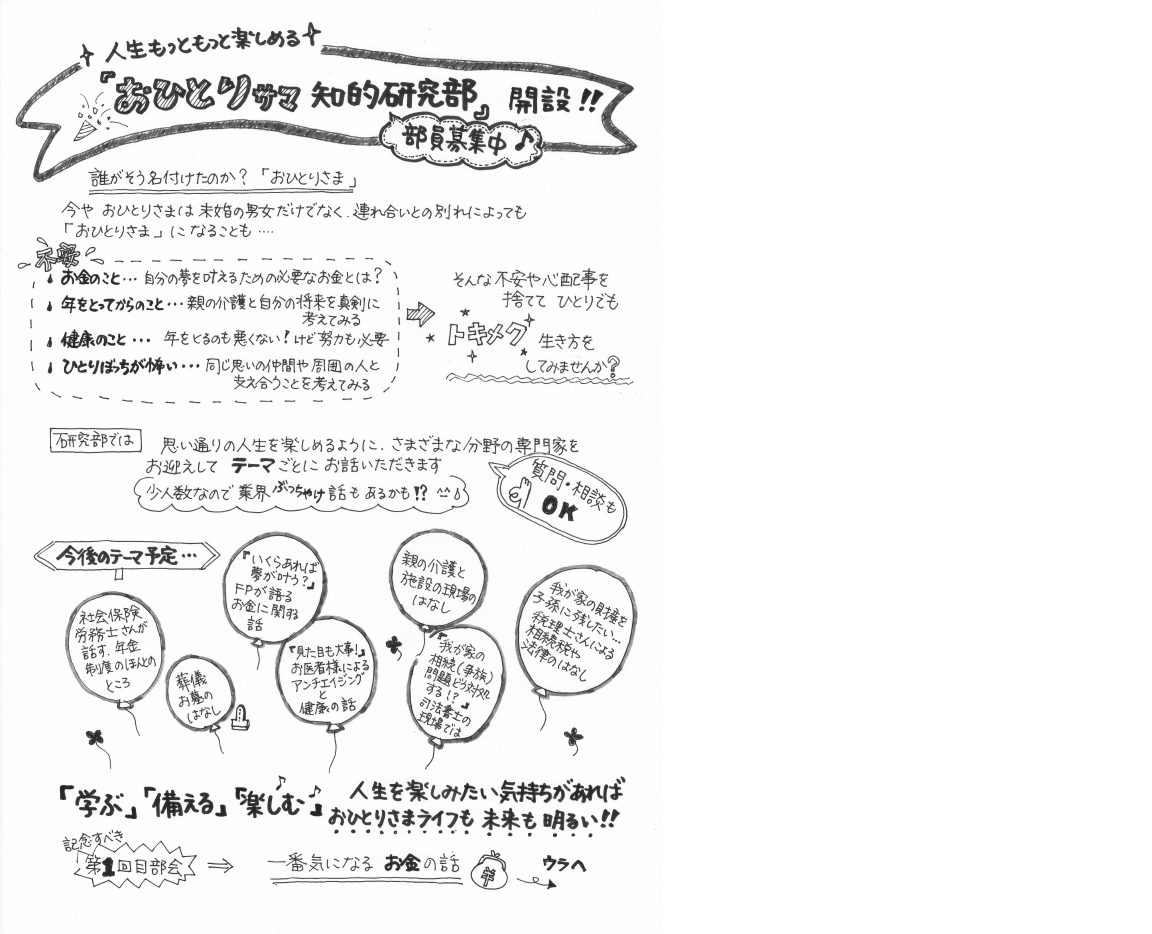 人生もっともっと楽しめる
『おひとりサマ 知的研究部』 開設!!
部員募集中♪
誰がそう名付けたのか？「おひとりさま」
今や おひとりさまは 未婚の男女だけでなく、連れ合いとの別れによっても
「おひとりさま」になることも‥‥
不安
お金のこと… 自分の夢を叶えるための必要なお金とは？
年をとってからのこと… 親の介護と自分の将来を真剣に
考えてみる
健康のこと… 年をとるのも悪くない！けど努力も必要
ひとりぼっちが怖い… 同じ思いの仲間や周囲の人と
支え合うことを考えてみる
そんな不安や心配事を
捨てて ひとりでも
トキメク 生き方を
してみませんか？
研究部では 思い通りの人生を楽しめるように、さまざまな分野の専門家を
お迎えして テーマごとに お話いただきます
少人数なので 業界ぶっちゃけ話も あるかも!?
質問・相談も
OK
今後のテーマ予定…
社会保険
労務士さんが
話す、年金
制度のほんとの
ところ
葬儀
お墓の
はなし
『いくらあれば
夢が叶う？』
FPが語る
お金に関する
話
『見た目も大事！』
お医者様による
アンチエイジング
と
健康の話
親の介護と
施設の現場の
はなし
『我が家の
相続（争族）
問題どう対処
する!？』
司法書士の
現場では
我が家の財産を
子孫に残したい…
税理士さんによる
相続税や
法律のはなし
「学ぶ」「備える」「楽しむ♪」
人生を楽しみたい気持ちがあれば
おひとりさまライフも 未来も 明るい!!
記念すべき
第1回目部会 ⇒ 一番気になる お金の話
ウラへ